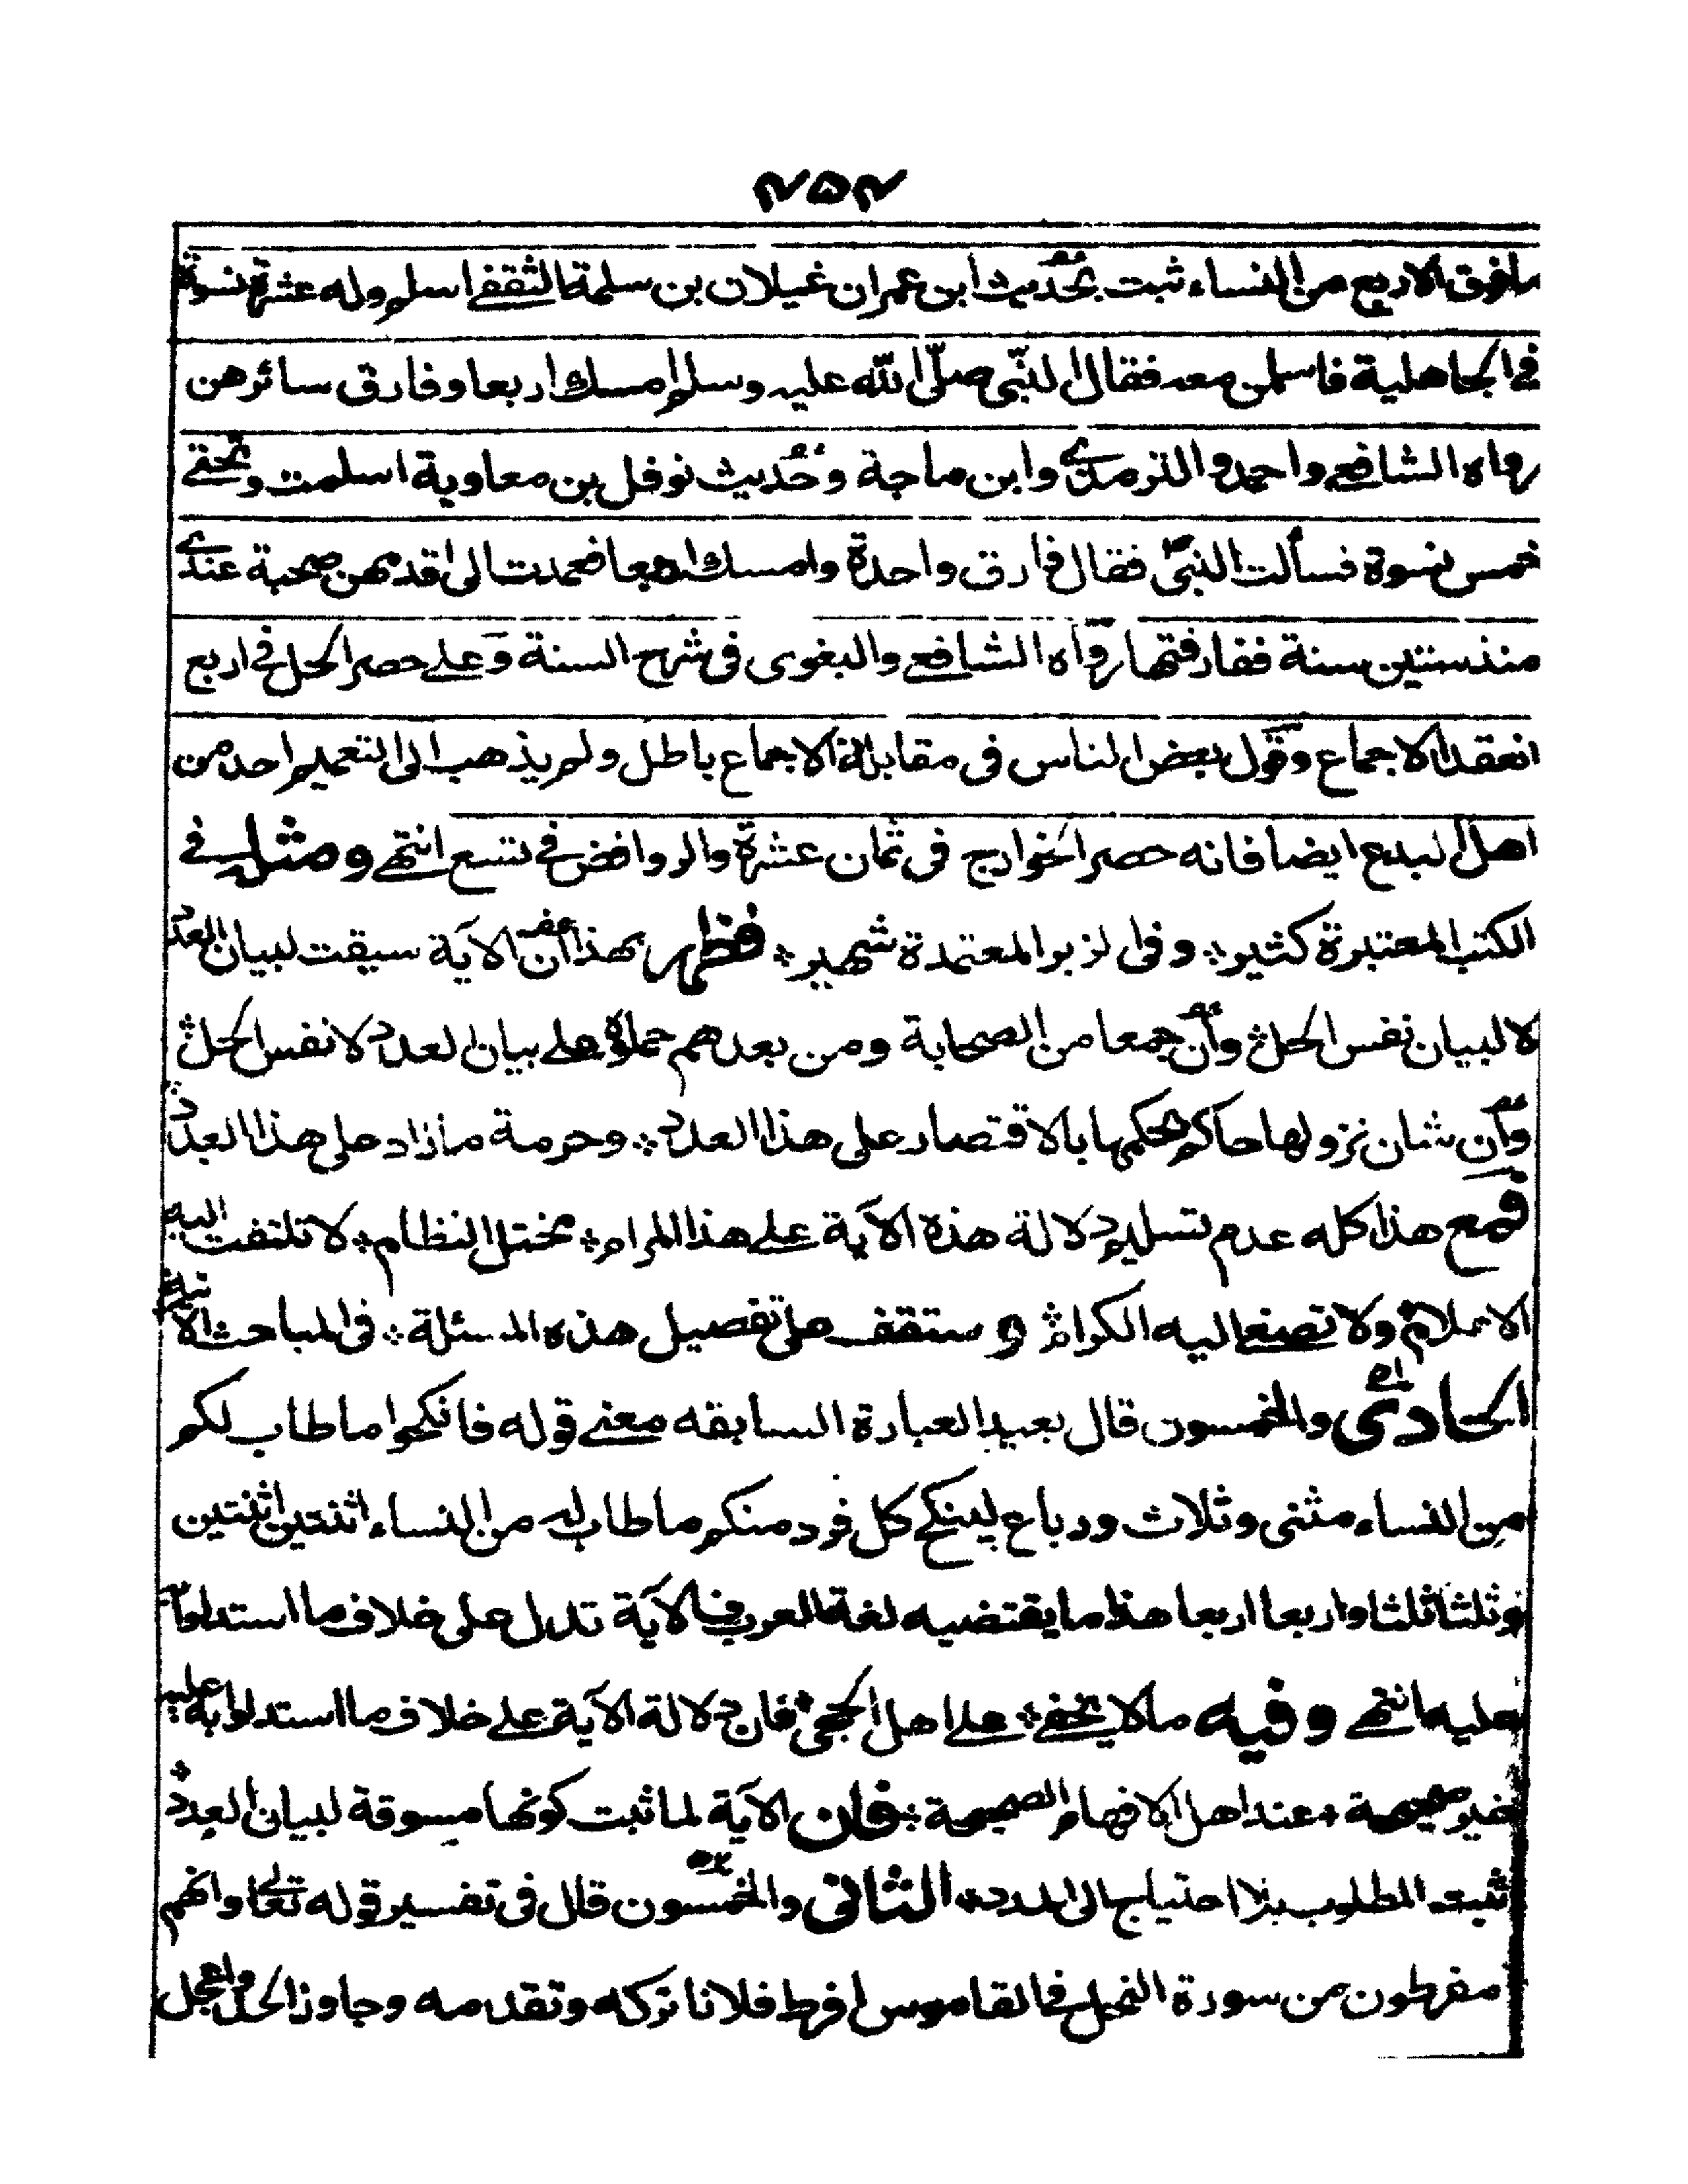 ٢٥٢
ما فوق الاربع من النساء ثبت بحديث ابن عمر ان غيلان بن سلمة الثقفي اسلم وله عشرة نسوة
في الجاهلية فاسلمن معه فقال النبي صلى الله عليه وسلم امسك اربعا وفارق سائرهن
رواه الشافعي واحمد والترمذي وابن ماجة وحديث نوفل بن معاوية اسلمت وتحتي
خمس نسوة فسألت النبي فقال فارق واحدة وامسك اربعا فعمدت الى اقدمهن صحبة عندي
منذ ستين سنة ففارقتها رواه الشافعي والبغوى فى شرح السنة وعلى حصر الحل في اربع
انعقد الاجماع وقول بعض الناس فى مقابلة الاجماع باطل ولم يذهب الى التعميم احد من
اهل البدع ايضا فانه حصر الخوارج فى ثمان عشرة والروافض في تسع انتهى ومثله في
الكتب المعتبرة كثير وفى الزبر المعتمدة شهير فظهر بهذا أن الآية سيقت لبيان العدد
لا لبيان نفس الحل وأن جمعا من الصحابة ومن بعدهم حملوه على بيان العدد لا نفس الحل
وأن شان نزولها حاكم بحكمها بالاقتصار على هذا العدد وحرمة ما زاد على هذا العدد
فمع هذا كله عدم تسليم دلالة هذه الآية على هذا المرام مختل النظام لا تلتفت اليه
الاعلام ولا تصغى اليه الكرام و ستقف على تفصيل هذه المسئلة فى المباحث الآتية
الحادى والخمسون قال بعيد العبارة السابقه معنى قوله فانكحوا ما طاب لكم
من النساء مثنى وثلاث ورباع لينكح كل فرد منكم ما طاب له من النساء اثنتين اثنتين
وثلثا ثلثا واربعا اربعا هذا ما يقتضيه لغة العرب فالآية تدل على خلاف ما استدلوا به
عليه انتهى وفيه ما لا يخفى على اهل الحجى فان دلالة الآية على خلاف ما استدلوا به عليه
غير صحيحة عند اهل الافهام الصحيحة فان الآية لما ثبت كونها مسوقة لبيان العدد
ثبت المطلوب بلا احتياج الى المدد الثانى والخمسون قال فى تفسير قوله تعالى وانهم
مفرطون من سورة النحل في القاموس افرط فلانا تركه وتقدمه وجاوز الحد واعجل